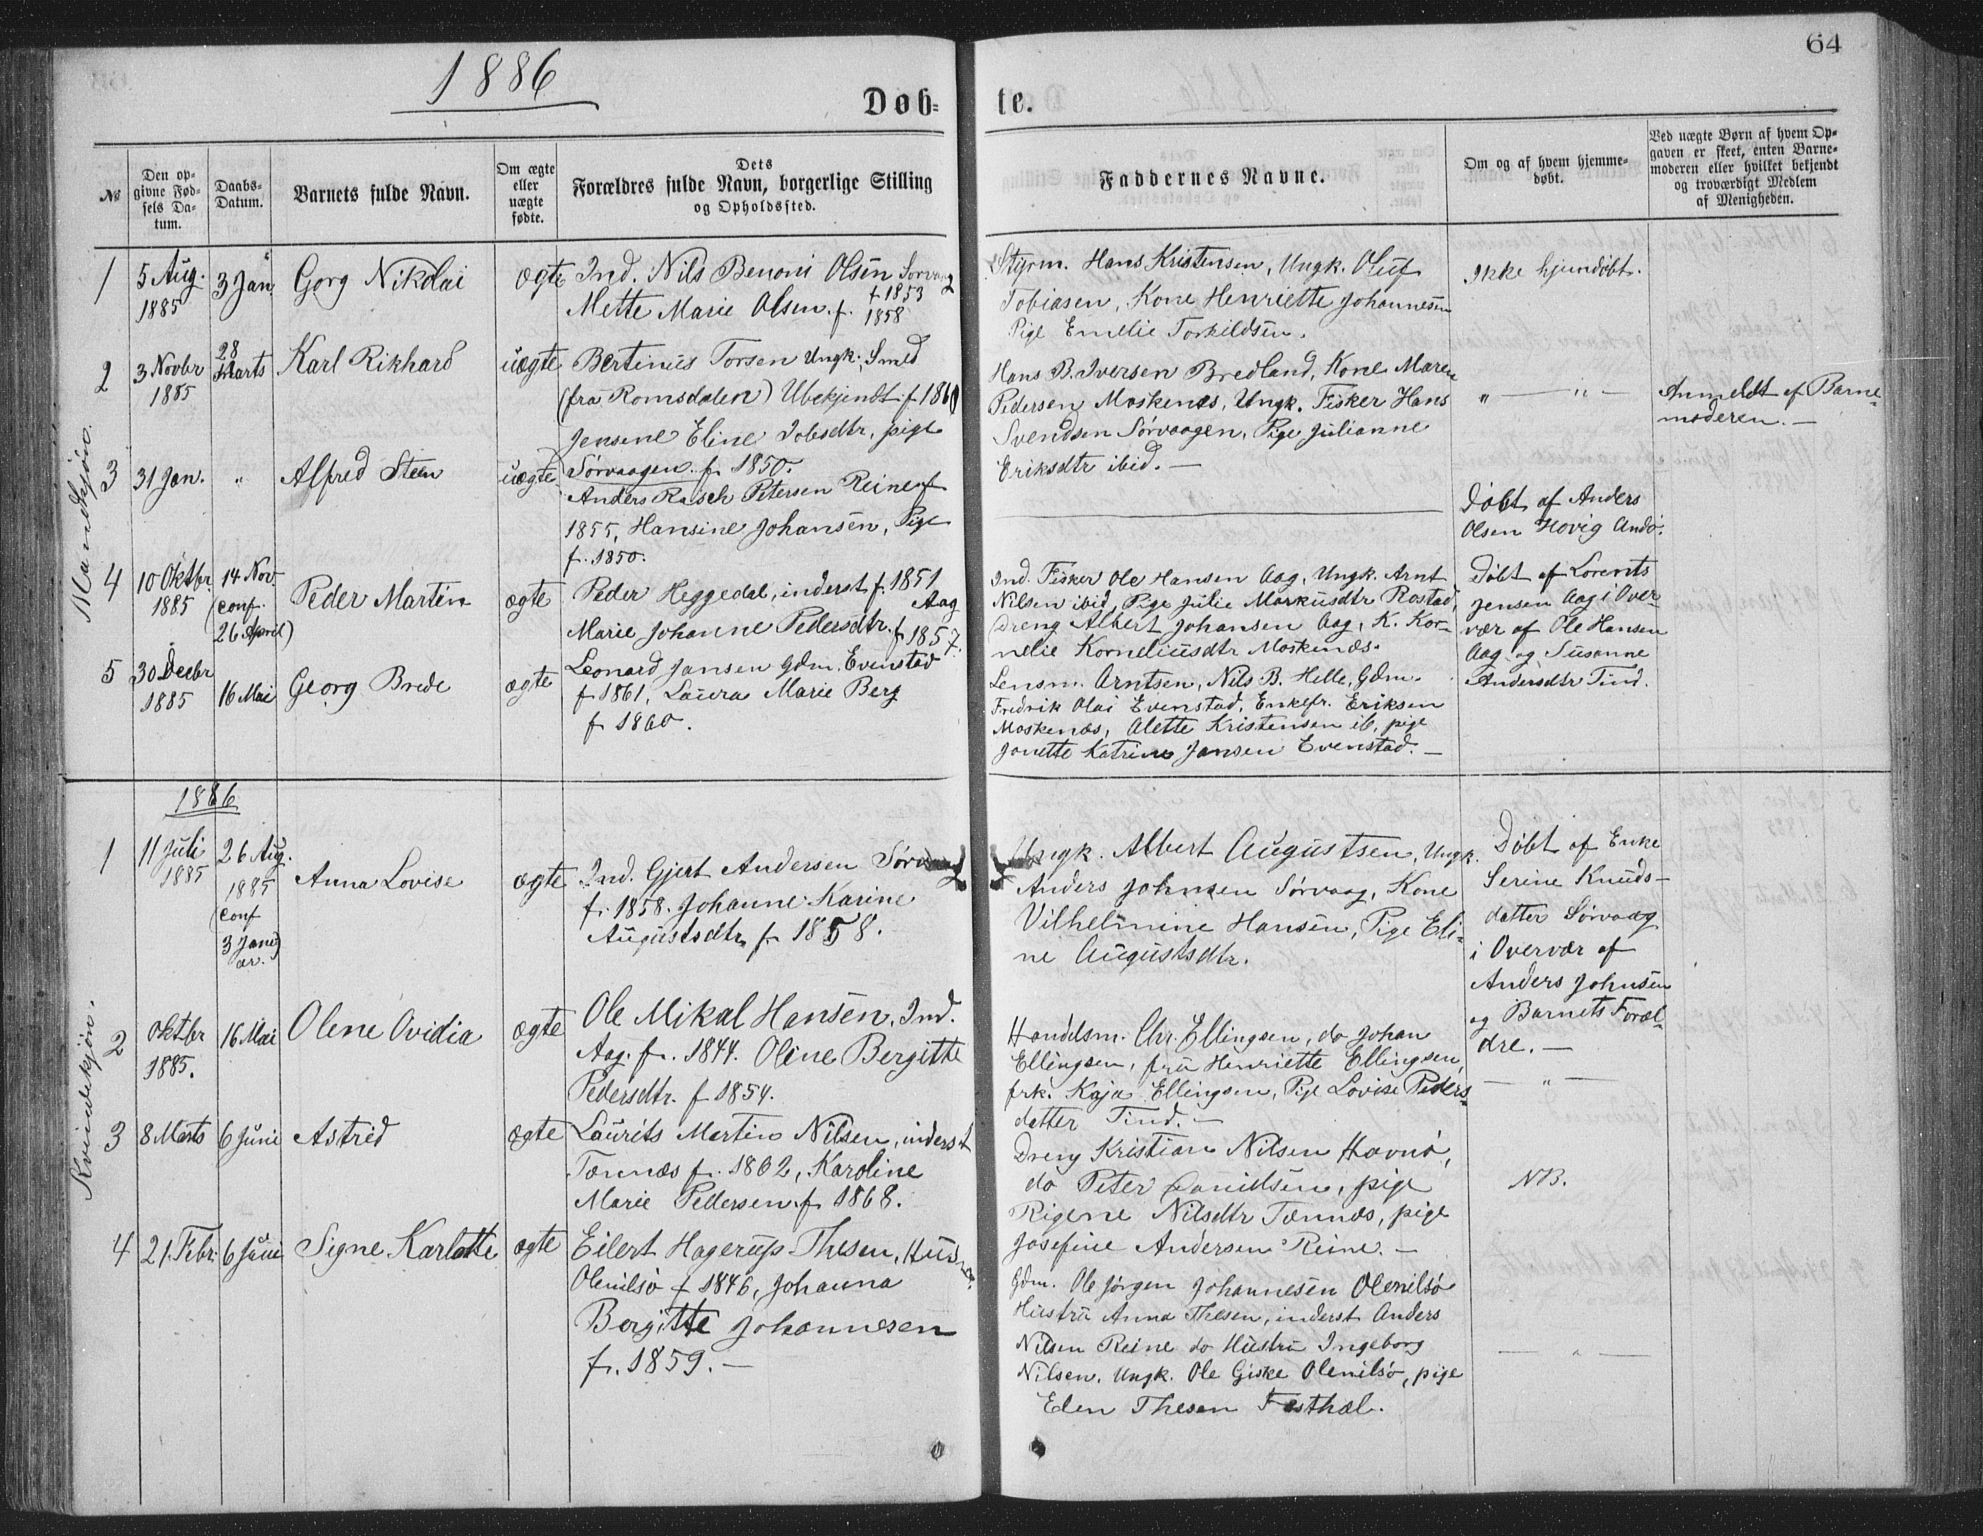 1886
64
Døb-
te.
№
Den op-
givne Fød-
sels Da-
tum.
Daabs-
Datum.
Barnets fulde Navn.
Om ægte
eller
uægte
fødte.
Dets
Forældres fulde Navn, borgerlige Stilling
og Opholdssted.
Faddernes Navne.
Om og af hvem hjemme-
døbt.
Ved uægte Børn af hvem Op-
gaven er skeet, enten Barne-
moderen eller hvilket bekjendt
og troværdigt Medlem
af Menigheden.
Mandkjøn.
1
5 Aug.
1885
3 Jan.
Gorg Nikolai
ægte
Ind. Nils Benoni Olsen Sørvaag
f 1853
Mette Marie Olsen. f. 1858
Styrm. Hans Kristensen, Ungk. Oluf
Tobiasen, Kone Henriette Johannesen
Pige Emelie Torkildsen.
Ikke hjemdøbt.
2
3 Novbr
1885
28
Marts
Karl Rikhard
uægte
Bertinus Torsen Ungk. Smed
(fra Romsdalen) Ubekjendt f 1860
Jensine Eline Jobsdtr, pige
Sørvaagen f. 1850.
Hans B. Iversen Bredland, Kone Maren
Pedersen Moskenæs, Ungk. Fisker Hans
Svendsen Sørvaagen, Pige Julianne
Eriksdtr ibid. —
" — " —
Anmeldt af Barne-
moderen. —
3
31 Jan.
"
Alfred Steen
uægte
Anders Rasch Petersen Reine f
1855, Hansine Johansen, Pige
f. 1850.
Døbt af Anders
Olsen Hovig Andø.
4
10 Oktbr.
1885
14 Nov.
(conf.
26 April)
Peder Martin
ægte
Peder Heggedal, inderst f. 1851
Aag
Marie Johanne Pedersdtr. f 1857.
Ind. Fisker Ole Hansen Aag, Ungk. Arnt
Nilsen ibid, Pige Julie Markusdtr Rostad,
Dreng Albert Johansen Aag, K. Kor-
nelie Korneliusdtr Moskenæs.
Døbt af Lorents
Jensen Aag i Over-
vær af Ole Hansen
Aag og Susanne
Andersdtr Tind.
5
30 Decbr
1885
16 Mai
Georg Brede
ægte
Leonard Jansen Gdm. Evenstad
f 1861, Laura Marie Berg
f 1860.
Lensm. Arntsen, Nils B. Helle, Gdm.
Fredrik Olai Evenstad, Enkefr. Eriksen
Moskenæs, Alette Kristensen ib, pige
Jonette Katrine Jansen Evenstad. —
1886
Kvindekjøn.
1
11 Juli
1885
26 Aug.
1885
(conf
3 Jan.)
Anna Lovise
ægte
Ind. Gjert Andersen Sørvaag
f. 1858. Johanne Karine
Augustsdtr f. 1858.
Ungk. Albert Augustsen, Ungk.
Anders Johnsen Sørvaag, Kone
Vilhelmine Hansen, Pige Eli-
ne Augustsdtr.
Døbt af Enke
Serine Knuds-
datter Sørvaag
i Overvær af
Anders Johnsen
og Barnets Foræl-
dre. —
2
Oktbr
1885.
16 Mai
Olene Ovidia
ægte
Ole Mikal Hansen, Ind.
Aag. f. 1844. Oline Bergitte
Pedersdtr. f 1854.
Handelsm. Chr. Ellingsen, do Johan
Ellingsen, fru Henriette Ellingsen,
frk. Kaja Ellingsen, Pige Lovise Peders-
datter Tind. —
— " —
3
8 Marts
6 Juni
Astrid
ægte
Laurits Martin Nilsen, inderst
Tønnæs f. 1862, Karoline
Marie Pedersen f 1868.
Dreng Kristian Nilsen Havnø,
do Peter Danielsen, pige
Rigene Nilsdtr Tønnæs, pige
Josefine Andersen Reine. —
NB.
4
21. Febr.
6 Juni
Signe Karlotte
ægte
Eilert Hagerup Thesen, Husm.
Olenilsø f 1846, Johanna
Bergitte Johannesen
f. 1859. —
Gdm. Ole Jørgen Johannesen Olenilsø
Hustru Anna Thesen, inderst Anders
Nilsen Reine do Hustru Ingeborg
Nilsen, Ungk. Ole Giske Olenilsø, pige
Elen Thesen Festhæl.
— " —